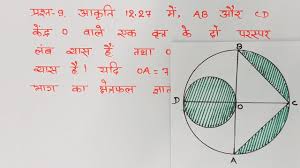 प्रश्न-9. आकृति 12.27 में, AB और CD
केंद्र O वाले एक वृत्त के दो परस्पर
लंब व्यास हैं तथा O
व्यास है। यदि OA = 7
भाग का क्षेत्रफल ज्ञात
B
D
O
C
A